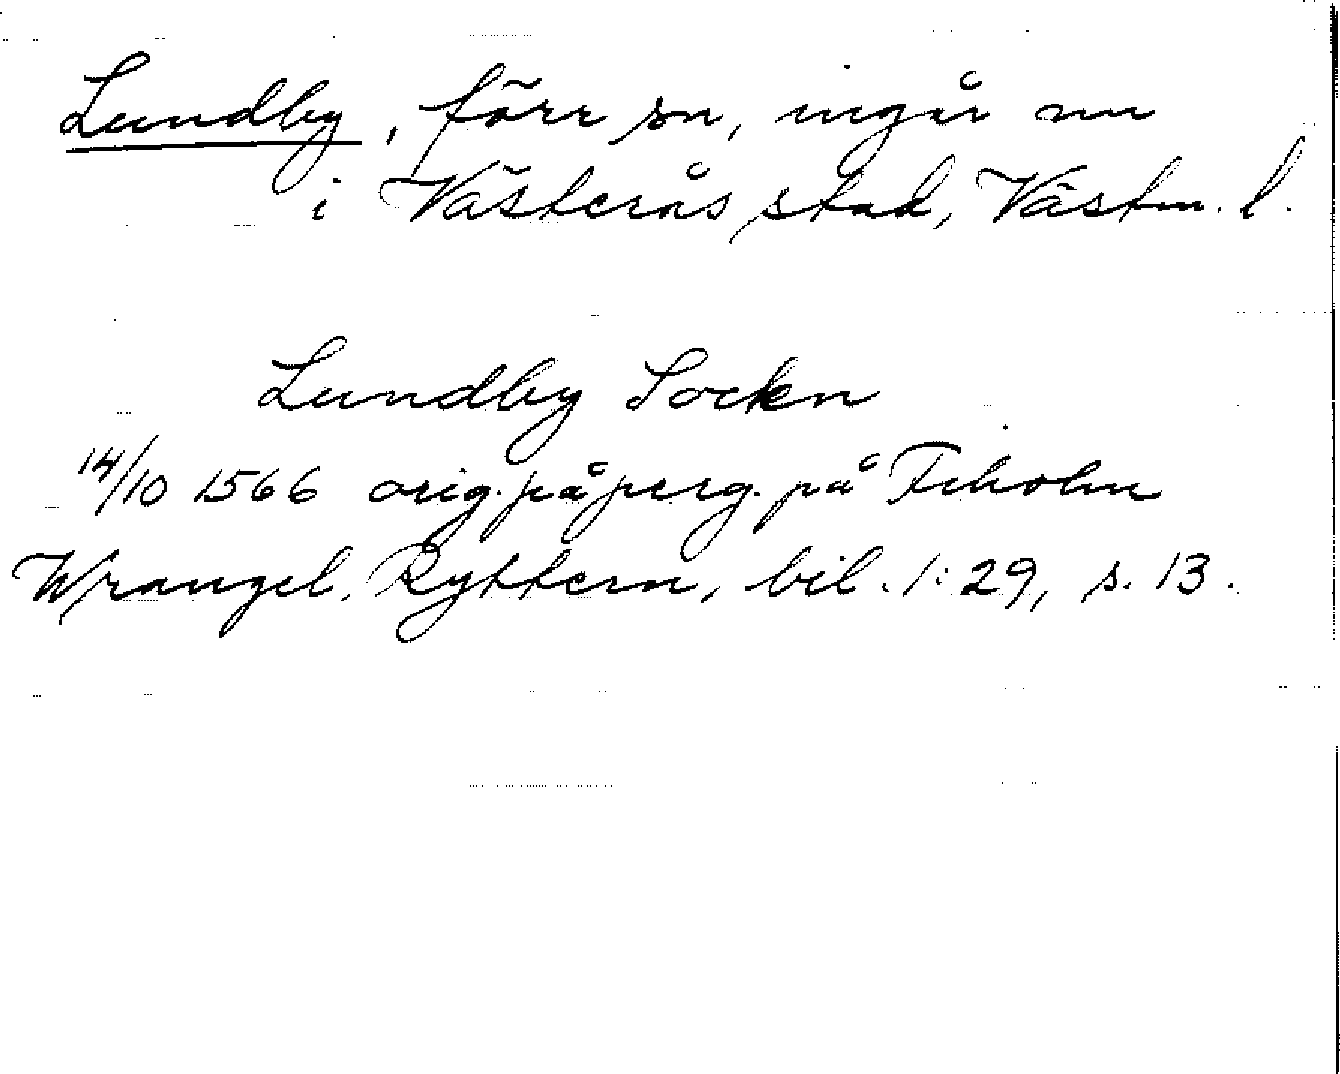 Lundby, förr sn, ingår nu
i Västerås stad, Västm. l.
Lundby Sockn
14/10 1566 orig. på perg. på Fiholm
Wrangel, Ryttern, bil. 1:29, s. 13.